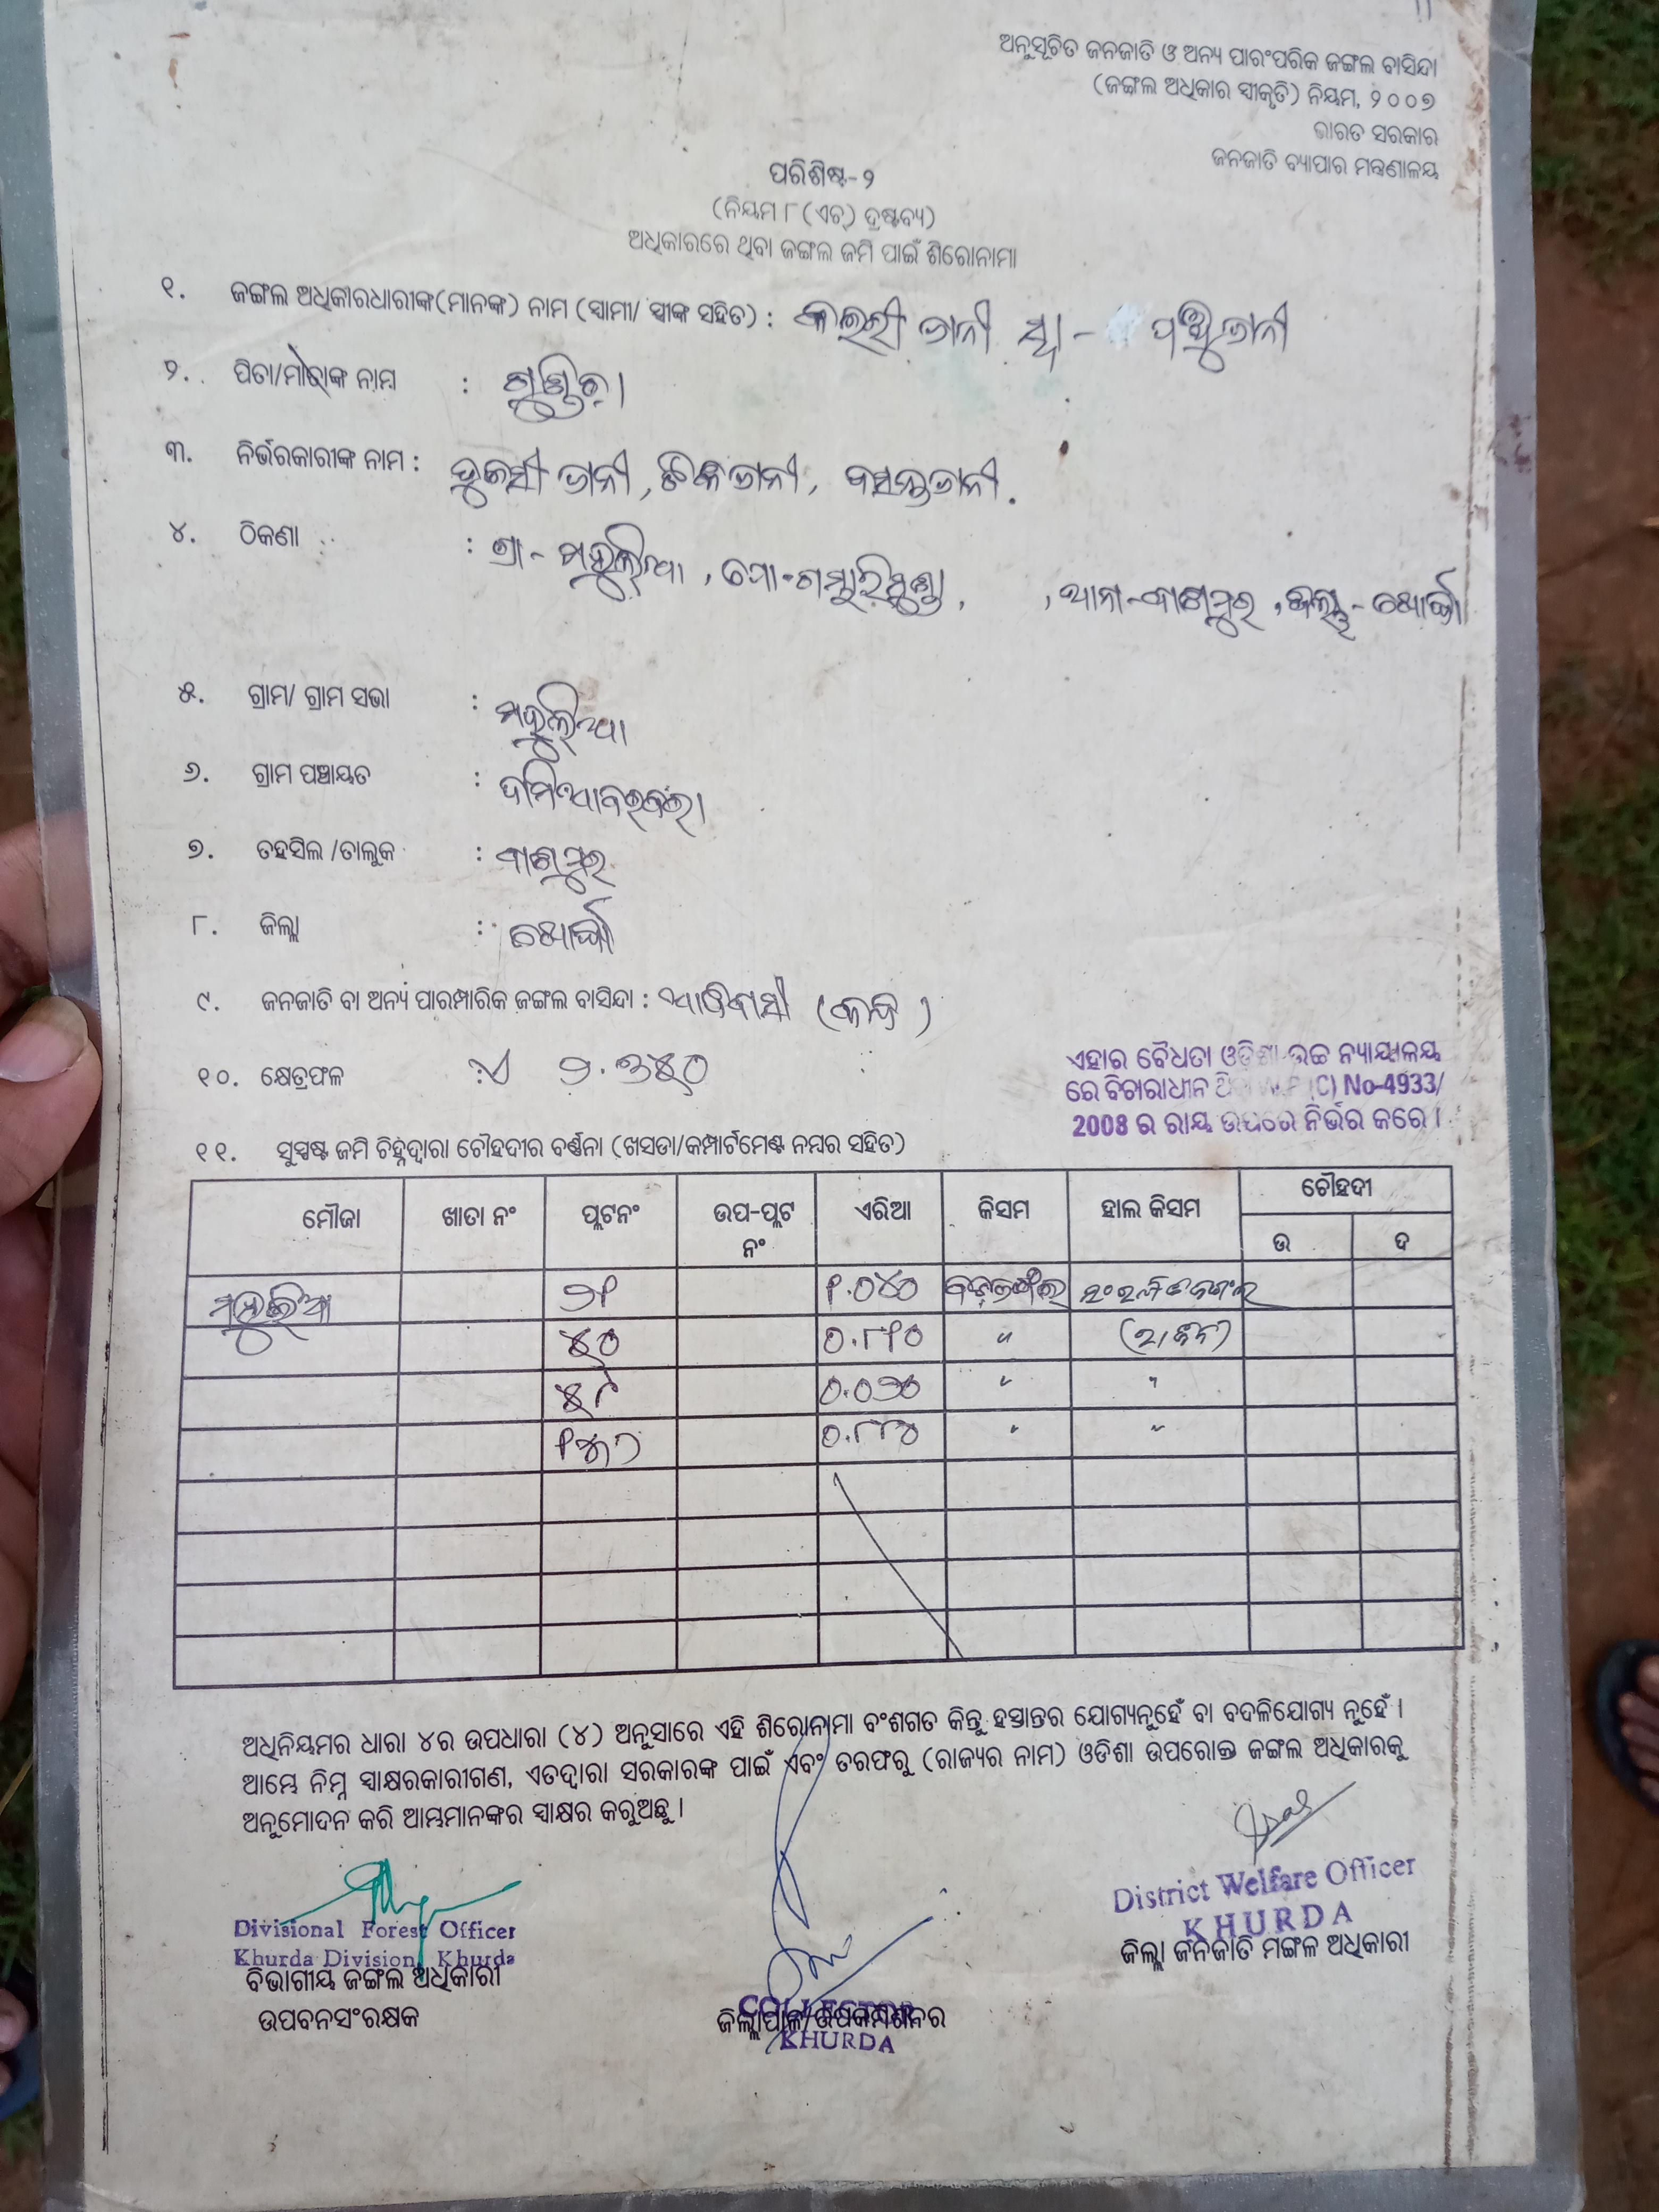 ଅନୁସୂଚିତ ଜନଜାତି ଓ ଅନ୍ୟ ପାରଂପରିକ ଜଙ୍ଗଲ ବାସିନ୍ଦା
(ଜଙ୍ଗଲ ଅଧିକାର ସ୍ୱୀକୃତି) ନିୟମ, ୨୦୦୭
ଭାରତ ସରକାର
ଜନଜାତି ବ୍ୟାପାର ମନ୍ତ୍ରଣାଳୟ
ପରିଶିଷ୍ଟ-୨
(ନିୟମ ୮ (ଏଚ୍) ଦ୍ରଷ୍ଟବ୍ୟ)
ଅଧିକାରରେ ଥିବା ଜଙ୍ଗଲ ଜମି ପାଇଁ ଶିରୋନାମା
୧. ଜଙ୍ଗଲ ଅଧିକାରଧାରୀଙ୍କ(ମାନଙ୍କ) ନାମ (ସ୍ୱାମୀ/ ସ୍ତ୍ରୀଙ୍କ ସହିତ) : ଜାନୀ ସ୍ୱା-
୨. ପିତା/ମାତାଙ୍କ ନାମ :
୩. ନିର୍ଭରକାରୀଙ୍କ ନାମ : ଜାନୀ,
୪. ଠିକଣା : ଗ୍ରା- ମହୁଲିଆ, ପୋ- , ଥାନା-ବାଣପୁର, ଜିଲ୍ଲା-ଖୋର୍ଦ୍ଧା
୫. ଗ୍ରାମ/ ଗ୍ରାମ ସଭା : ମହୁଲିଆ
୬. ଗ୍ରାମ ପଞ୍ଚାୟତ :
୭. ତହସିଲ /ତାଲୁକ : ବାଣପୁର
୮. ଜିଲ୍ଲା : ଖୋର୍ଦ୍ଧା
୯. ଜନଜାତି ବା ଅନ୍ୟ ପାରମ୍ପାରିକ ଜଙ୍ଗଲ ବାସିନ୍ଦା : ଆଦିବାସୀ (କନ୍ଧ)
୧୦. କ୍ଷେତ୍ରଫଳ : ଏ ୨.୭୫୦
ଏହାର ବୈଧତା ଓଡ଼ିଶା ଉଚ୍ଚ ନ୍ୟାୟାଳୟ
ରେ ବିଚାରାଧୀନ (C) No-4933/
2008 ର ରାୟ ଉପରେ ନିର୍ଭର କରେ ।
୧୧. ସୁସ୍ପଷ୍ଟ ଜମି ଚିହ୍ନଦ୍ୱାରା ଚୌହଦୀର ବର୍ଣ୍ଣନା (ଖସଡା/କମ୍ପାର୍ଟମେଣ୍ଟ ନମ୍ବର ସହିତ)
ମୌଜା ଖାତା ନଂ ପ୍ଲଟନଂ ଉପ-ପ୍ଲଟ ନଂ ଏରିଆ କିସମ ହାଲ କିସମ ଚୌହଦୀ
ଉ ଦ
ମହୁଲିଆ ୨୧ ୧.୦୪୦
୫୦ ୦.୮୧୦ "
୫୮ ୦.୦୨୦ " "
୦.୮୮୦ " "
ଅଧିନିୟମର ଧାରା ୪ର ଉପଧାରା (୪) ଅନୁସାରେ ଏହି ଶିରୋନାମା ବଂଶଗତ କିନ୍ତୁ ହସ୍ତାନ୍ତର ଯୋଗ୍ୟନୁହେଁ ବା ବଦଳିଯୋଗ୍ୟ ନୁହେଁ ।
ଆମ୍ଭେ ନିମ୍ନ ସ୍ୱାକ୍ଷରକାରୀଗଣ, ଏତଦ୍ୱାରା ସରକାରଙ୍କ ପାଇଁ ଏବଂ ତରଫରୁ (ରାଜ୍ୟର ନାମ) ଓଡିଶା ଉପରୋକ୍ତ ଜଙ୍ଗଲ ଅଧିକାରକୁ
ଅନୁମୋଦନ କରି ଆମ୍ଭମାନଙ୍କର ସ୍ୱାକ୍ଷର କରୁଅଛୁ ।
Divisional Forest Officer
Khurda Division, Khurda
ବିଭାଗୀୟ ଜଙ୍ଗଲ ଅଧିକାରୀ
ଉପବନସଂରକ୍ଷକ
COLLECTOR
ଜିଲ୍ଲାପାଳ/ଉପକମିଶନର
KHURDA
District Welfare Officer
KHURDA
ଜିଲ୍ଲା ଜନଜାତି ମଙ୍ଗଳ ଅଧିକାରୀ